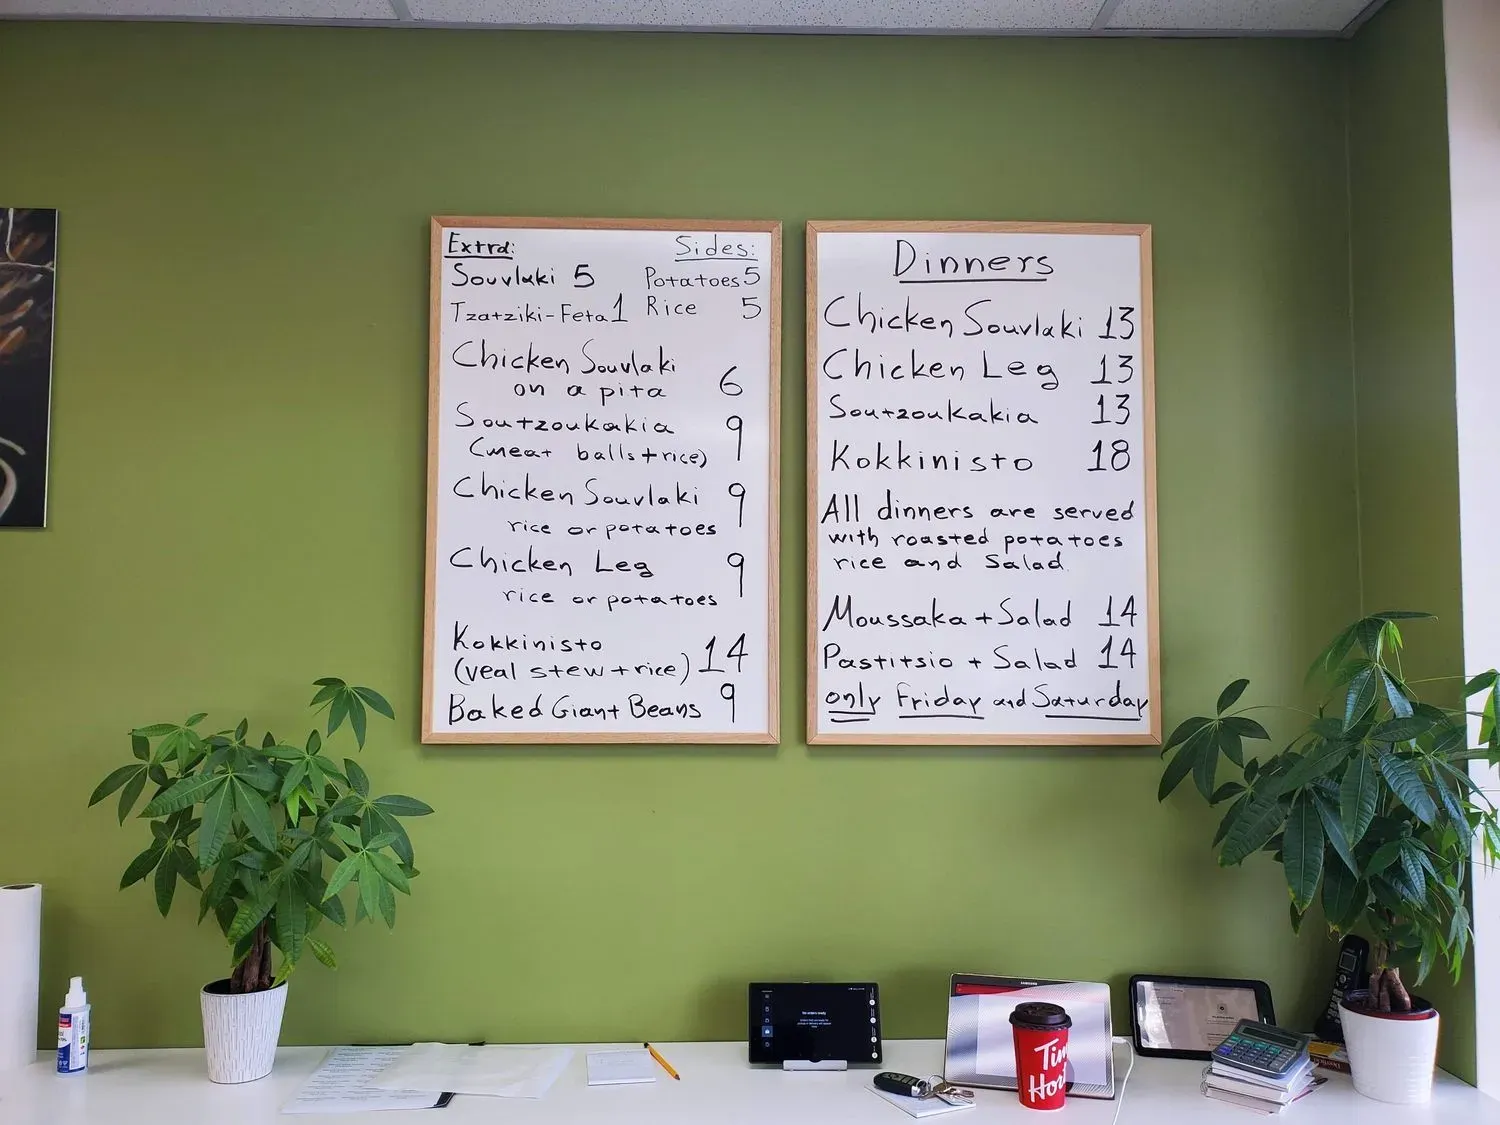 Extra:
Souvlaki 5
Tzatziki-Feta 1
Sides:
Potatoes 5
Rice 5
Chicken Souvlaki
on a pita 6
Soutzoukakia 9
(meat balls + rice)
Chicken Souvlaki 9
rice or potatoes
Chicken Leg 9
rice or potatoes
Kokkinisto
(veal stew + rice) 14
Baked Giant Beans 9
Dinners
Chicken Souvlaki 13
Chicken Leg 13
Soutzoukakia 13
Kokkinisto 18
All dinners are served
with roasted potatoes
rice and Salad
Moussaka + Salad 14
Pastitsio + Salad 14
only Friday and Saturday
SAMSUNG
Tim
Hor